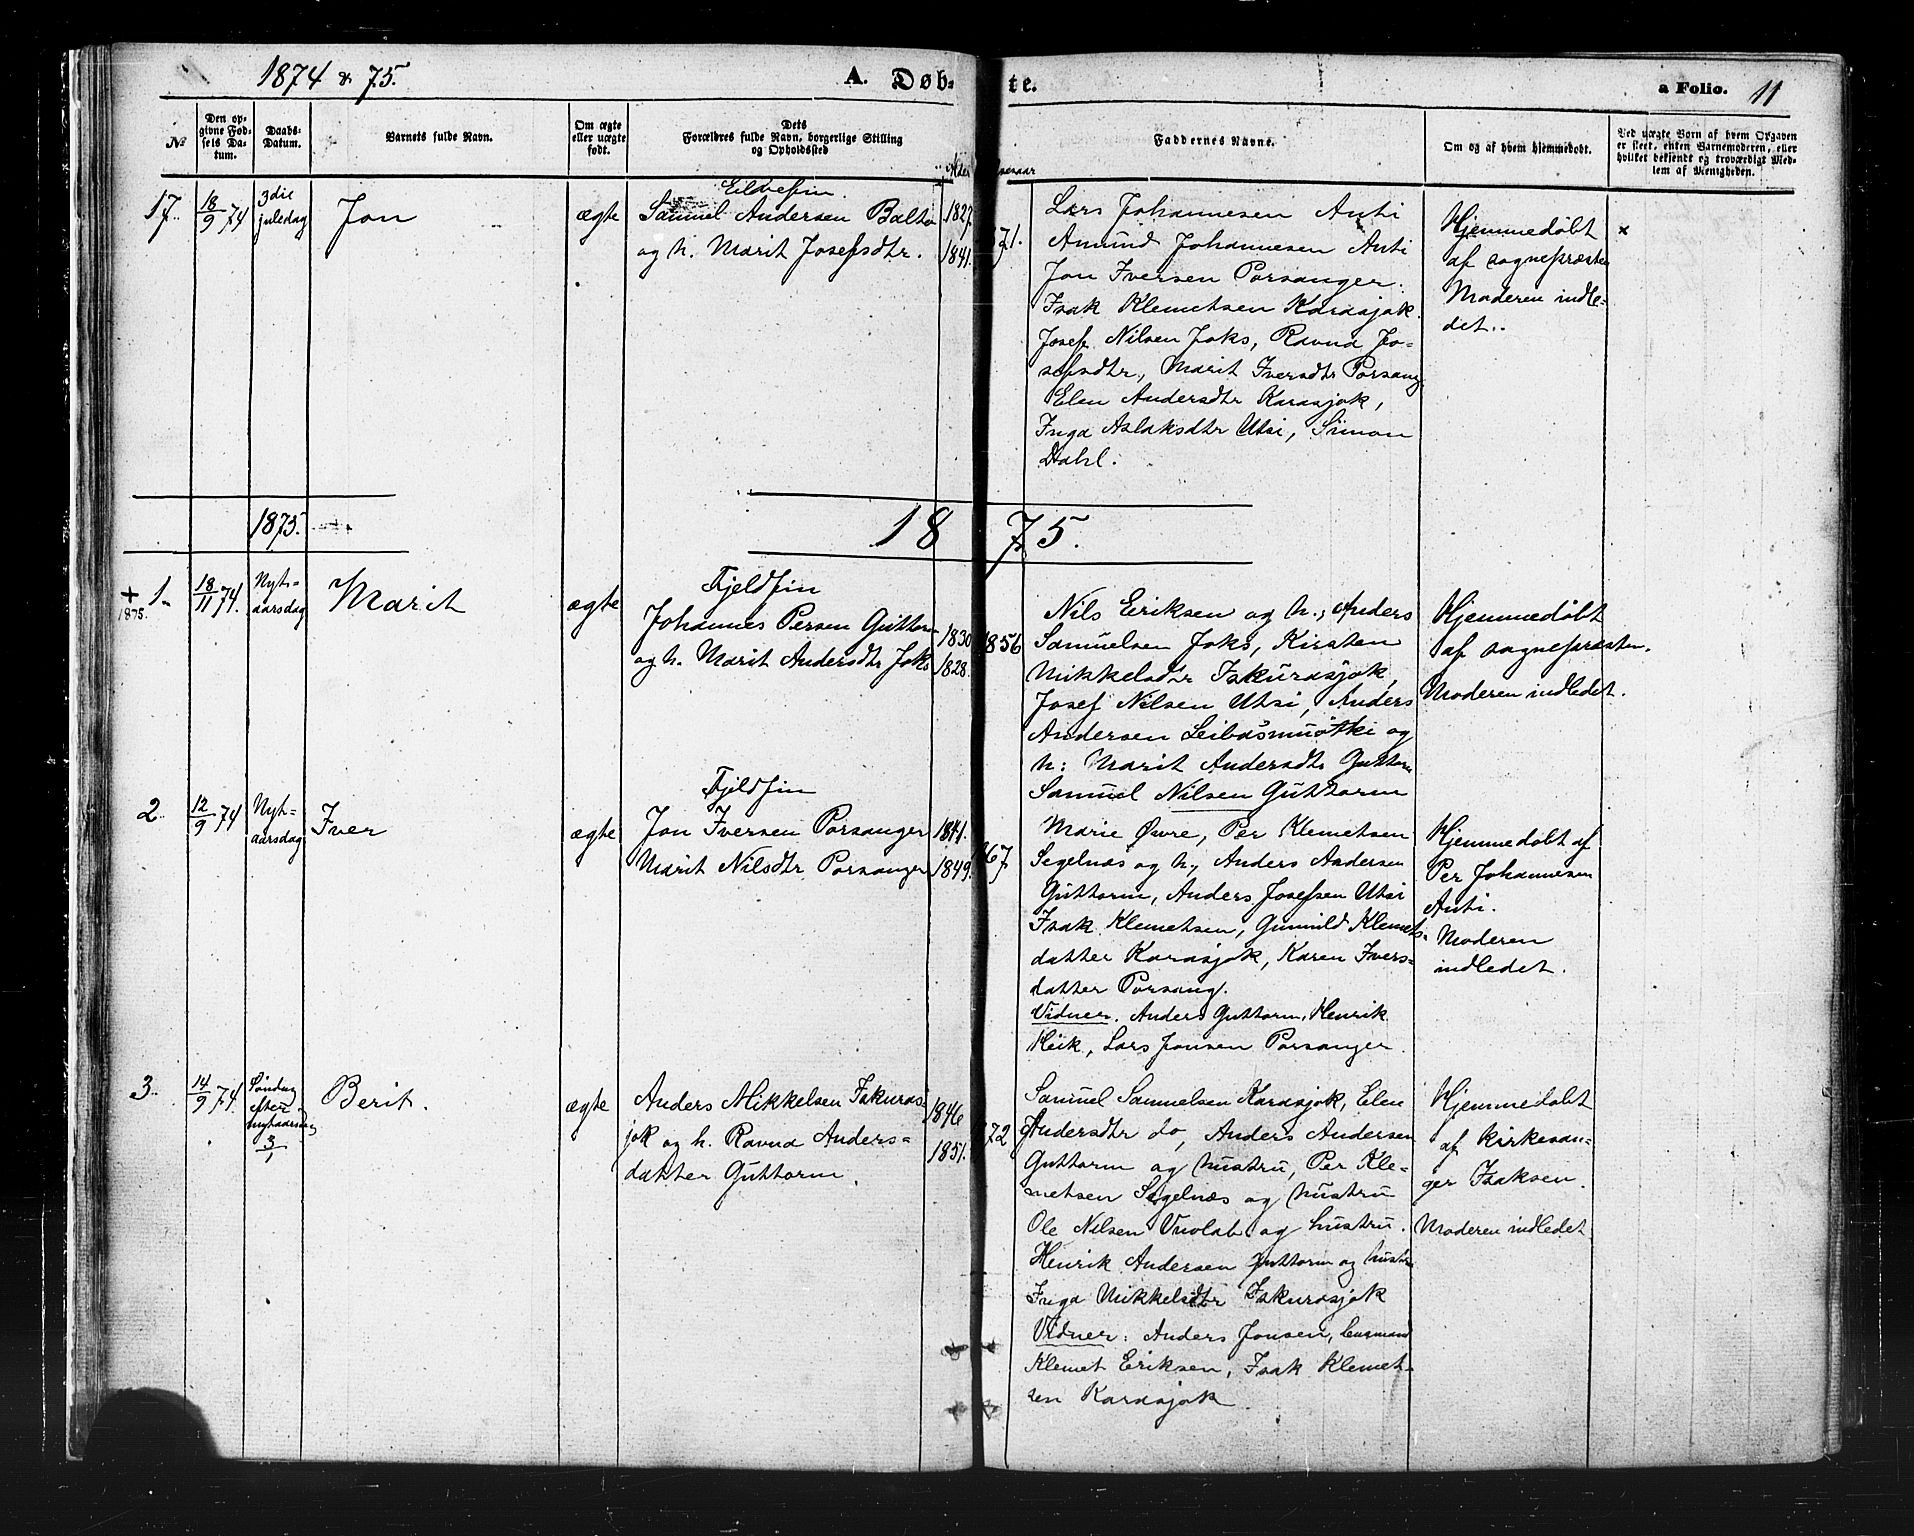 1874 & 75.
A. Døb-
te.
a Folio. 11
No
Den op-
givne Fød-
sels Da-
tum.
Daabs-
Datum.
Barnets fulde Navn.
Om ægte
eller uægte
født.
Dets
Forældres fulde Navn, borgerlige Stilling
og Opholdssted
Faddernes Navne.
Om og af hvem hjemmedøbt.
Ved uægte Børn af hvem Opgaven
er skeet, enten Barnemoderen, eller
hvilket bekjendt og troværdigt Med-
lem af Menigheden.
17. 18/9 74
3die
juledag
Jon
ægte
Samuel Andersen Balto 1827.
og h. Marit Josefsdtr. 1841.
71.
Lars Johannesen Anti
Amund Johannesen Anti
Jon Iversen Porsanger.
Isak Klemetsen Karasjok.
Josef Nilsen Joks, Ravna Jo-
sefsdtr., Marit Iversdtr Porsang.
Elen Andersdtr Karasjok,
Inga Aslaksdtr Utsi, Simon
Dahl.
Hjemmedøbt
af sognepræsten
Moderen indle-
det.
x
1875.
1875.
+
1875.
1. 18/11 74.
Nyt-
aarsdag
Marit
ægte
Fjeldfin
Johannes Persen Guttorm 1830
og h. Marit Andersdtr Joks 1828.
1856
Nils Eriksen og h., Anders
Samuelsen Joks, Kirsten
Mikkelsdtr Iskurasjok,
Josef Nilsen Utsi, Anders
Andersen Leibasmuotki og
h: Marit Andersdtr Guttorm
Samuel Nilsen Guttorm
Hjemmedøbt
af sognepræsten.
Moderen indledet.
2. 12/9 74
Nyt-
aarsdag
Iver
ægte
Fjeldfin
Jon Iversen Porsanger 1841.
Marit Nilsdtr Porsanger 1849.
67.
Marie Øvre, Per Klemetsen
Segelnæs og h., Anders Andersen
Guttorm, Anders Josefsen Utsi
Isak Klemetsen, Gunnild Klemets-
datter Karasjok, Karen Ivers-
datter Porsang.
Vidner. Anders Guttorm, Henrik
Keik, Lars Jonsen Porsanger.
Hjemmedøbt af
Per Johannesen
Anti.
Moderen
indledet.
3. 14/9 74.
Søndag
efter
nytaarsdag
3/1
Berit.
ægte
Anders Mikkelsen Iskuras- 1846
jok og h. Ravna Anders- 1851.
datter Guttorm.
72
Samuel Samuelsen Karasjok, Elen
Andersdtr do, Anders Andersen
Guttorm og hustru, Per Kle-
metsen Segelnæs og hustru
Ole Nilsen Vuolab og hustru.
Henrik Andersen Guttorm og hustru
Inga Mikkelsdtr Iskurasjok
Vidner: Anders Jonsen,
Klemet Eriksen, Isak Klemet-
sen Karasjok
Hjemmedøbt
af kirkesan-
ger Isaksen.
Moderen indledet